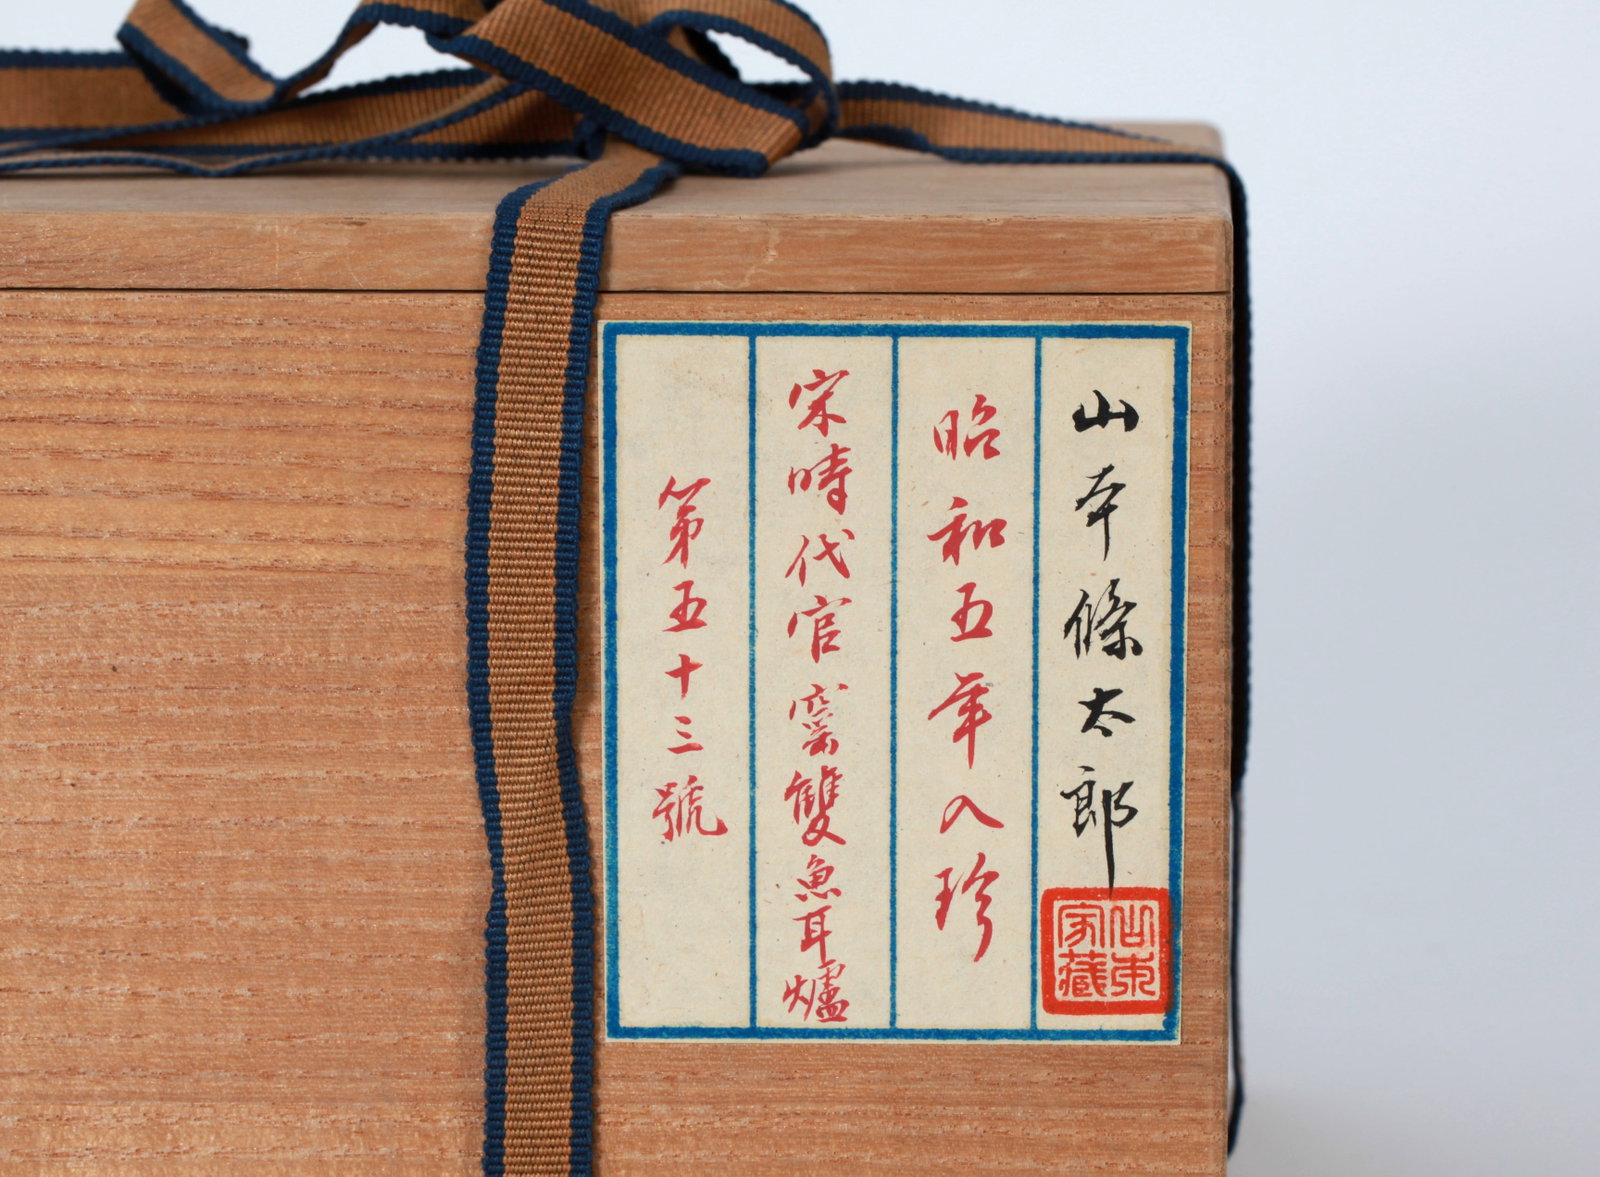 山本條太郎
昭和五年入珍
宋時代官窯雙魚耳爐
第五十三號
山本家藏